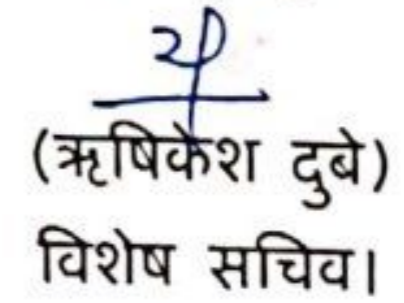 (ऋषिकेश दुबे)
विशेष सचिव।